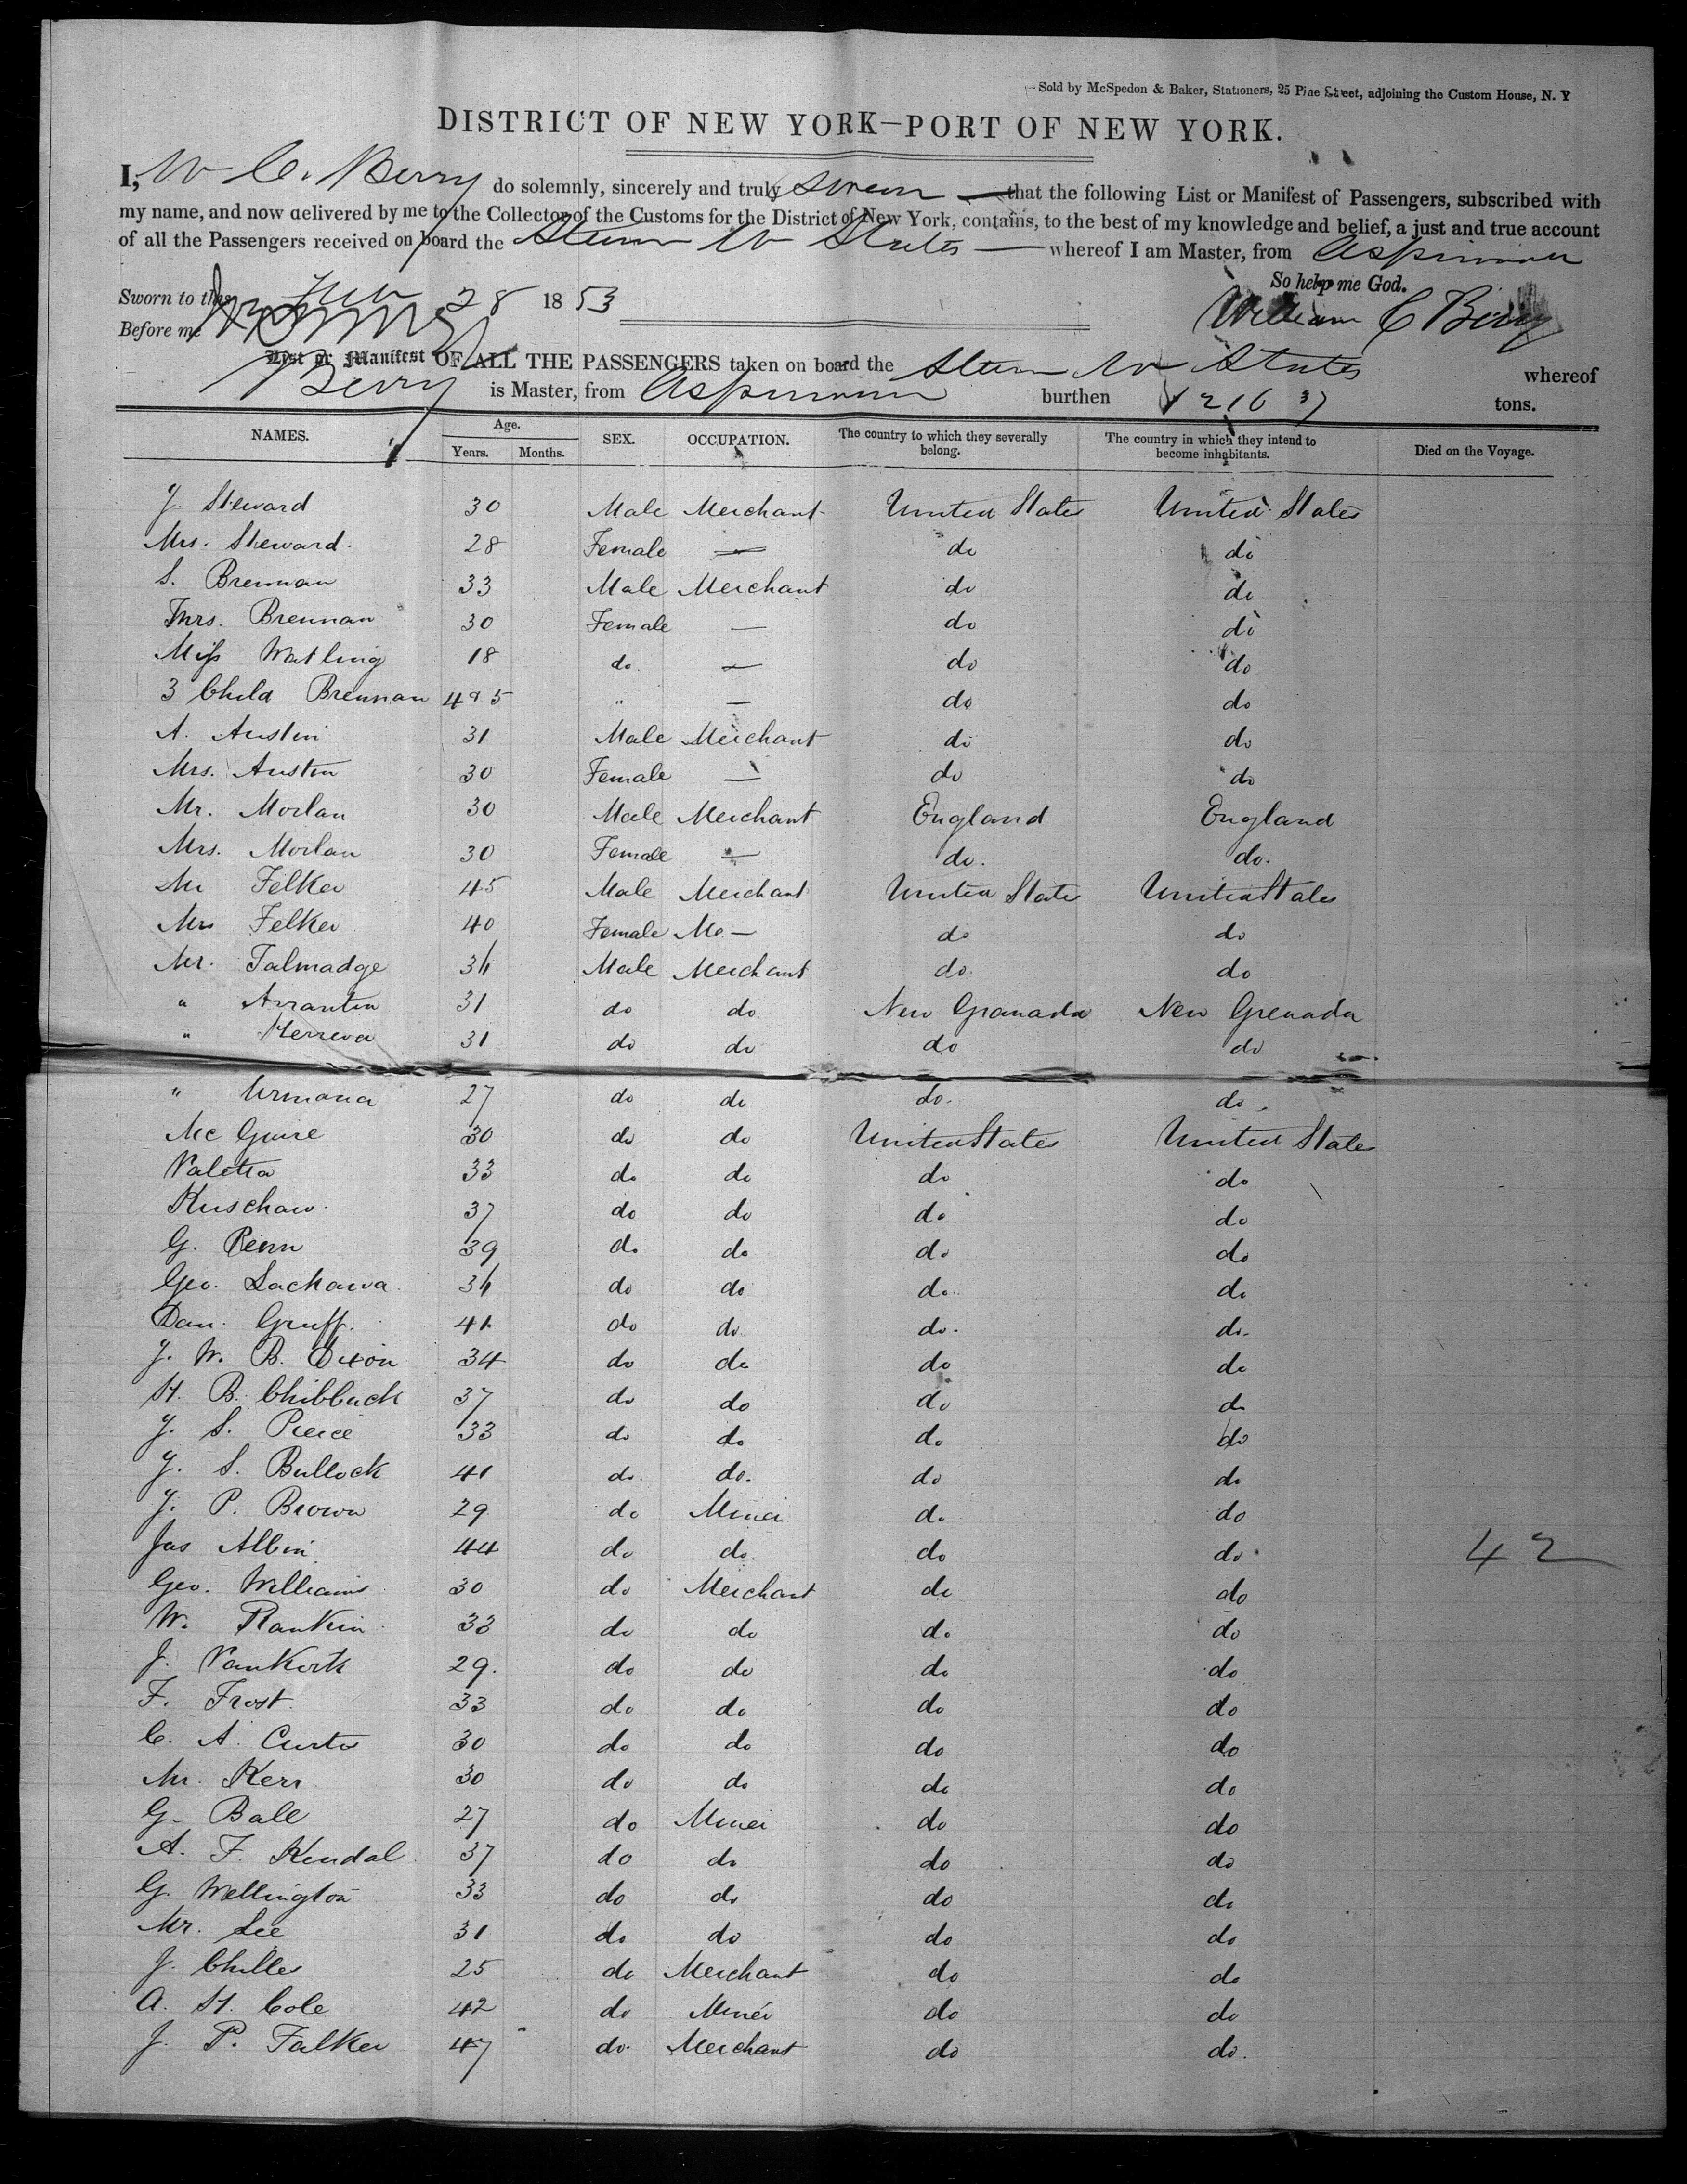 Sold by McSpedon & Baker, Stationers, 25 Pine Street, adjoining the Custom House, N. Y
DISTRICT OF NEW YORK—PORT OF NEW YORK.
I, W C. Berry do solemnly, sincerely and truly swear that the following List or Manifest of Passengers, subscribed with
my name, and now delivered by me to the Collector of the Customs for the District of New York, contains, to the best of my knowledge and belief, a just and true account
of all the Passengers received on board the Steam U States whereof I am Master, from Aspinwall
So help me God.
Sworn to this 28 1853
William C Berry
Before me
List or Manifest OF ALL THE PASSENGERS taken on board the Steam U States whereof
Berry is Master, from Aspinwall burthen 1216 37 tons.
NAMES. Age. Years. Months. SEX. OCCUPATION. The country to which they severally belong. The country in which they intend to become inhabitants. Died on the Voyage.
J. Steward 30 Male Merchant United States United States
Mrs. Steward. 28 Female — do do
S. Brennan 33 Male Merchant do do
Mrs. Brennan 30 Female — do do
Miss Watling 18 do — do do
3 Child Brennan 4 & 5 " — do do
A. Austin 31 Male Merchant do do
Mrs. Austin 30 Female — do do
Mr. Morlan 30 Male Merchant England England
Mrs. Morlan 30 Female — do. do.
Mr Felker 45 Male Merchant United States United States
Mrs Felker 40 Female Me — do do
Mr. Talmadge 36 Male Merchant do. do
" 31 do do New Granada New Grenada
" Herrera 31 do do do do
" Urmana 27 do do do. do.
Mc Guire 30 do do United States United States
Valetta 33 do do do do
Kuschaw. 37 do do do do
G. Penn 39 do do do do
Geo. Lackawa. 36 do do do do
Dan. Gruff. 41 do do do. do.
J. W. B. Dixon 34 do do do do
H. B. Chibbuck 37 do do do do
J. S. Pierce 33 do do do do
J. S. Bullock 41 do. do. do do
J. P. Brown 29 do Miner do do
Jas Albin 44 do do do do 42
Geo. Williams 30 do Merchant do do
W. Rankin 33 do do do do
J. VanKirk 29. do do do do
F. Frost 33 do do do do
C. A. Curtis 30 do do do do
Mr. Kerr 30 do do do do
G. Ball 27 do Miner do do
A. F. Kendal 37 do do do do
G. Wellington 33 do do do do
Mr. Lee 31 do do do do
J. Chilles 25 do Merchant do do
A. H. Cole 42 do Miner do do
J. P. Falker 47 do Merchant do do.